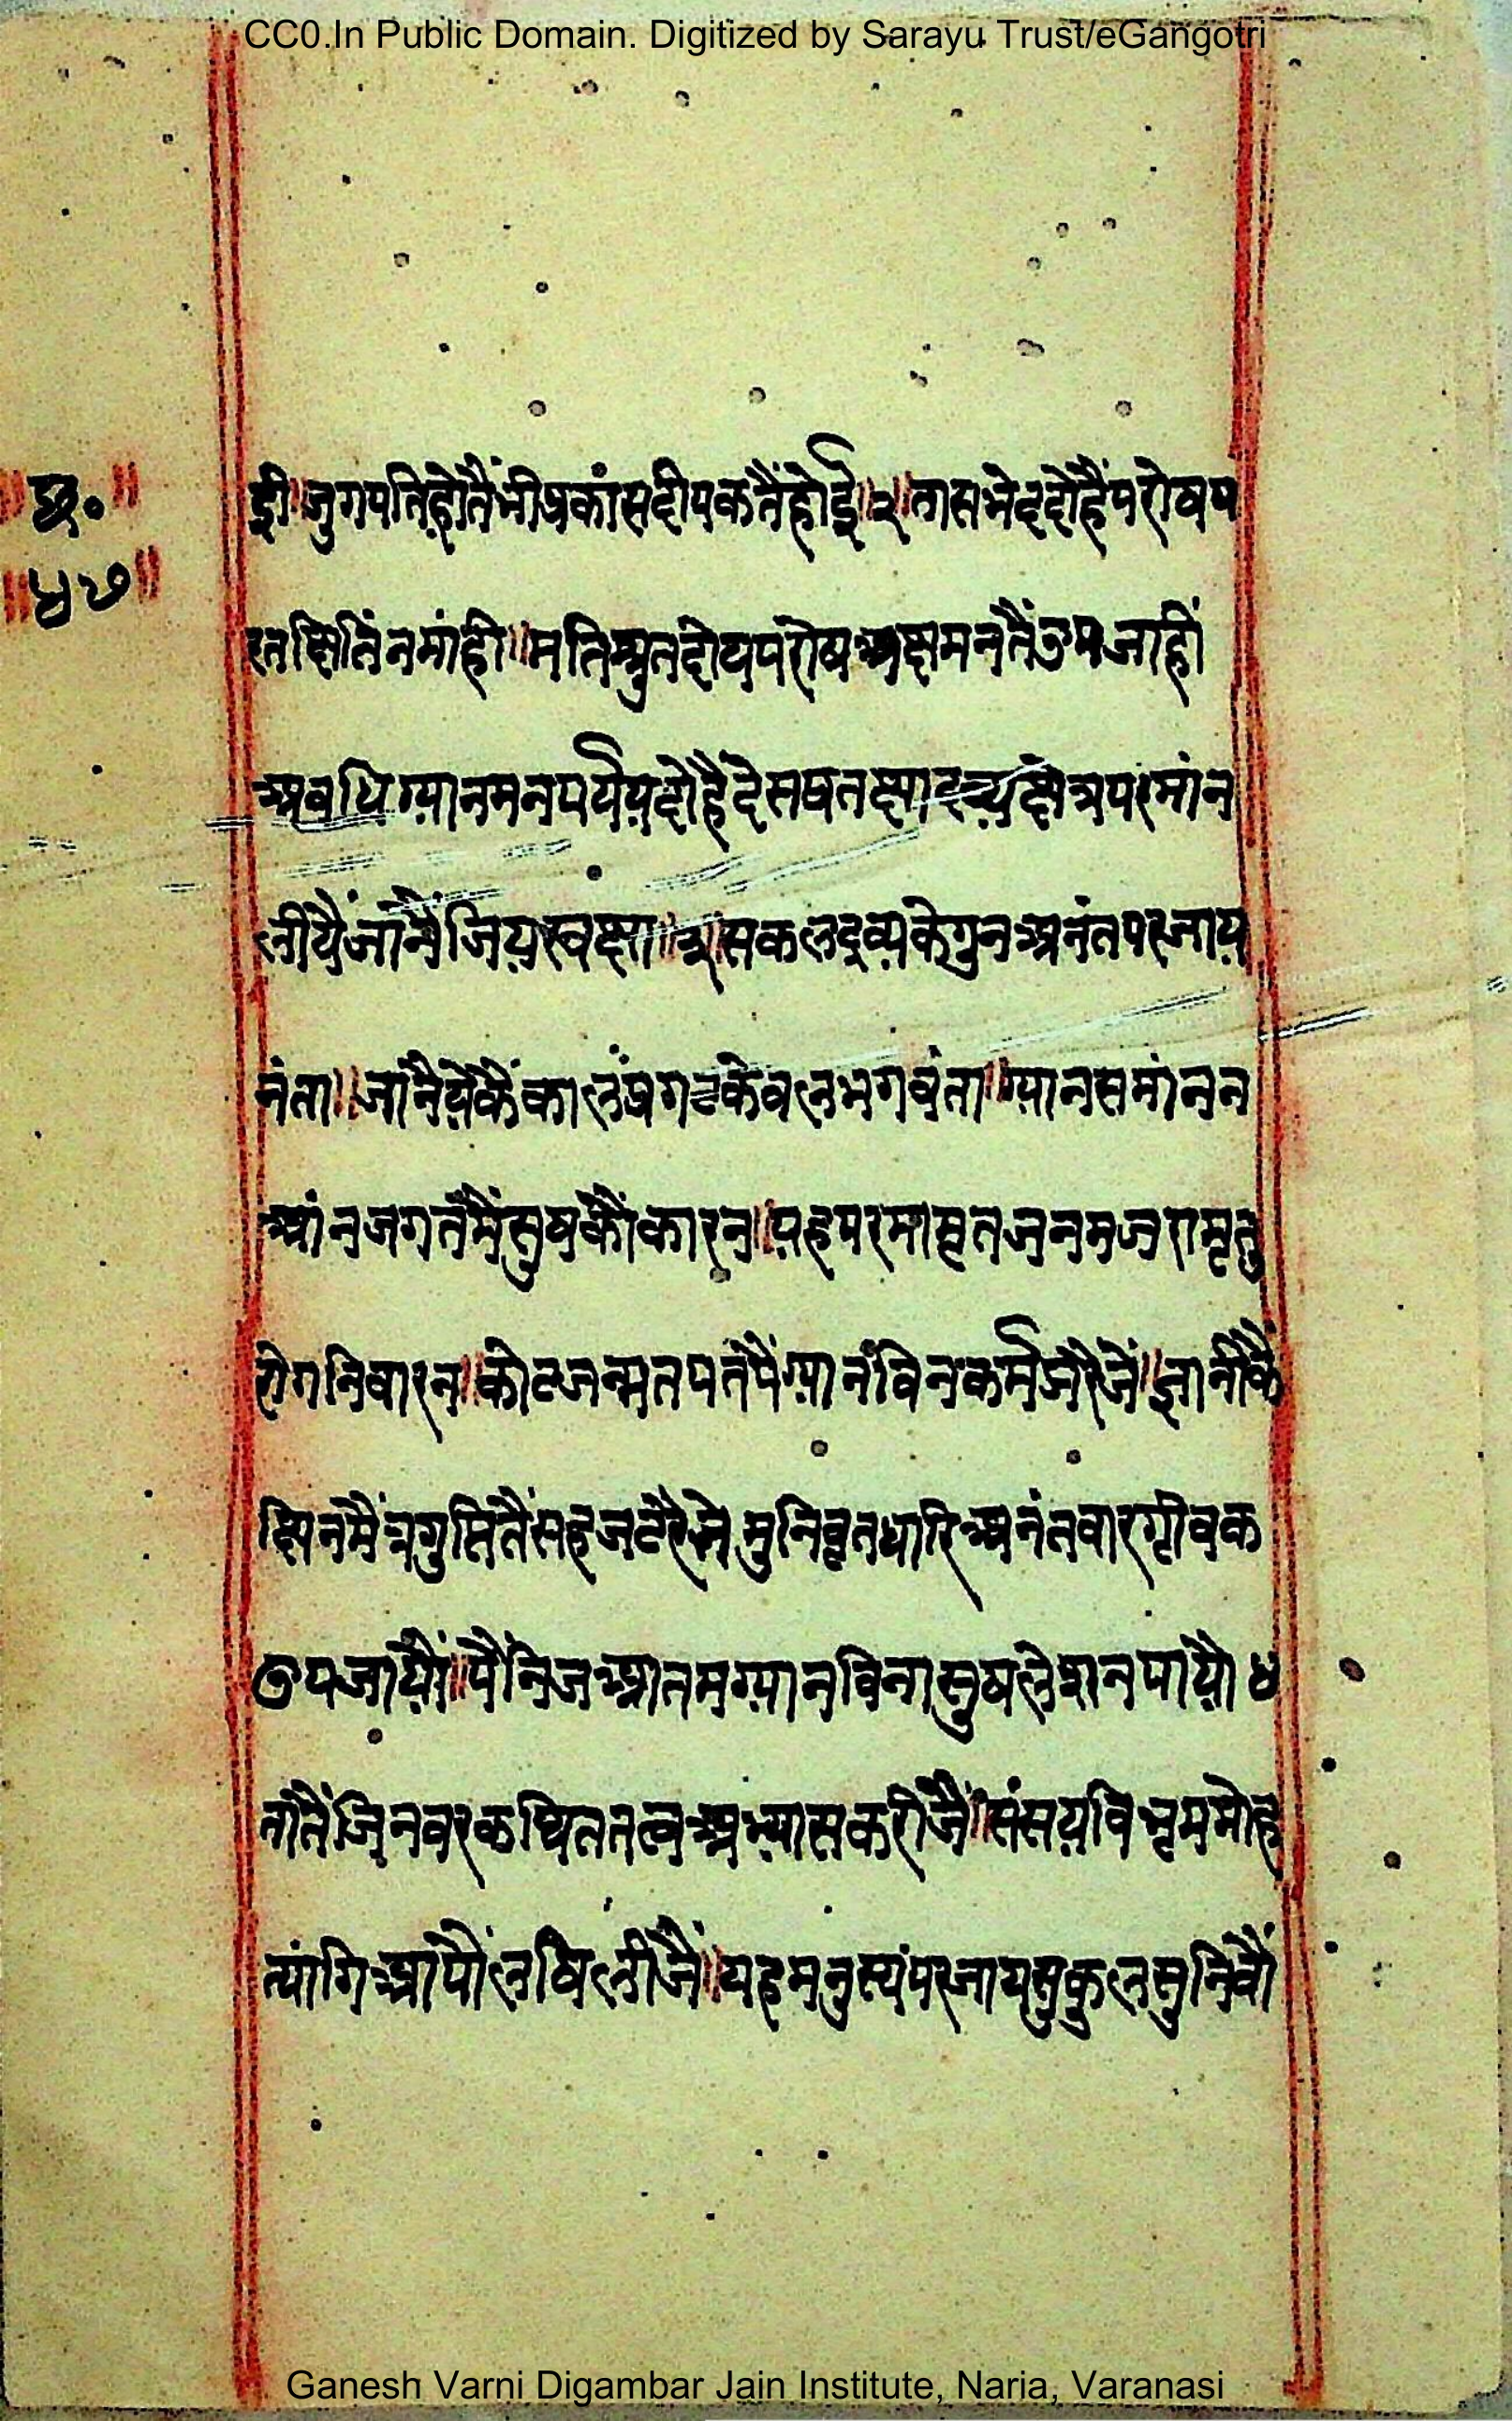 CC0.In Public Domain. Digitized by Sarayu Trust/eGangotri
॥छ॰॥
॥५७॥
ई॥जुगपतिहोतैंभीप्रकांसदीपकतैंहोई॥२॥तासभेददोहैंपरोषप
रतछितिंनमांही॥मतिश्रुतदोयपरोषअक्षमनतैंउपजाही
अवधिग्यानमनपर्यैयदोहैदेसषतक्षाद्रव्यक्षेत्रपरमांन
लीयैंजांनैंजियस्वक्षा॥३॥सकलद्रव्यकेगुनअनंतपरजाय
नंता॥जांनैयेकैंकालंप्रगटकेवलभगवंता॥ग्यानसमांनन
आंनजगतमैंसुषकौंकारन॥यहपरमामृतजनमजरामृतु
रोगनिवारन॥कोटजन्मतपतपैंग्यानंविनकर्मजरैजें॥ज्ञानीकैं
छिनमैंत्रगुप्तितैंसहजटरैंते मुनिवृतधारिअनंतवारग्रीवक
उपजायौं॥पैंनिजआतमग्यानविनासुषलेशनपायौ ४
तांतैंजिनवरकथिततत्वअभ्यासकरीजैं॥संसयविभृममोह
त्यांगिआंपौंलषिलीजैं॥यहमनुस्यंपरजायसुकुलसुनिवौं
Ganesh Varni Digambar Jain Institute, Naria, Varanasi